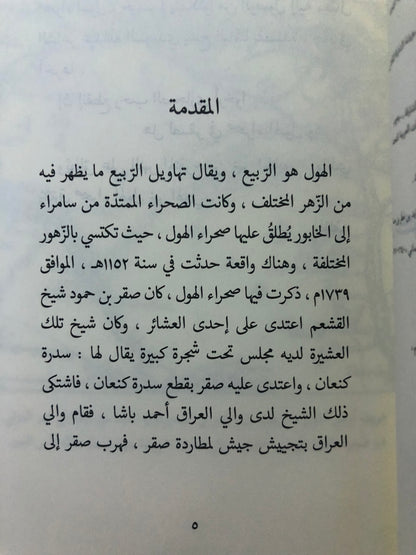 المقدمة
الهول هو الرّبيع ، ويقال تهاويل الرّبيع ما يظهر فيه
من الزّهر المختلف ، وكانت الصحراء الممتدّة من سامراء
إلى الخابور يُطلقُ عليها صحراء الهول ، حيث تكتسي بالزّهور
المختلفة ، وهناك واقعة حدثت في سنة ١١٥٢هـ ، الموافق
١٧٣٩م ، ذكرت فيها صحراء الهول ، كان صقر بن حمود شيخ
القشعم اعتدى على إحدى العشائر ، وكان شيخ تلك
العشيرة لديه مجلس تحت شجرة كبيرة يقال لها : سدرة
كنعان ، واعتدى عليه صقر بقطع سدرة كنعان ، فاشتكى
ذلك الشيخ لدى والي العراق أحمد باشا ، فقام والي
العراق بتجييش جيش لمطاردة صقر ، فهرب صقر إلى
٥